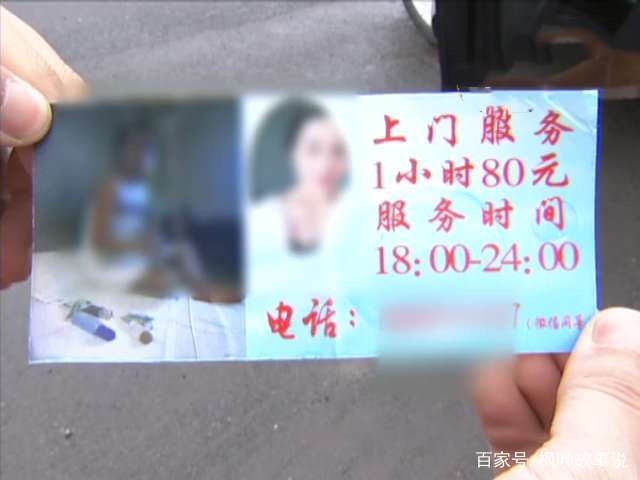 上门服务
1小时80元
服务时间
18:00-24:00
电话：
(微信同号
百家号